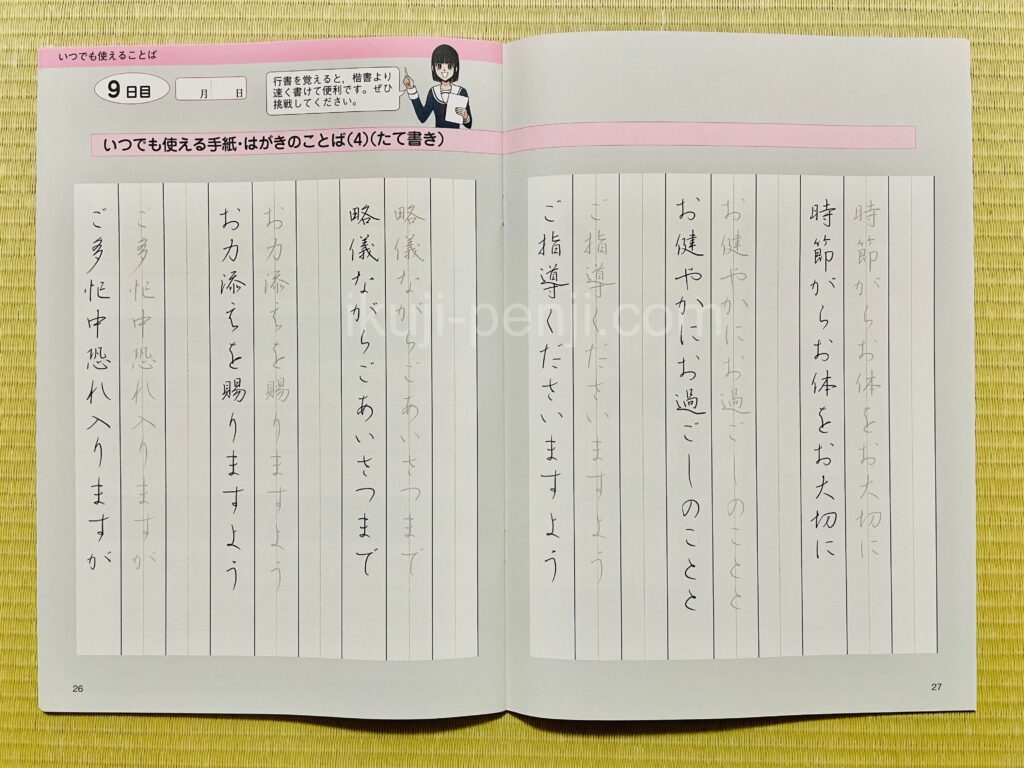 いつでも使えることば
9日目
月 日
行書を覚えると，楷書より
速く書けて便利です。ぜひ
挑戦してください。
いつでも使える手紙・はがきのことば(4)(たて書き)
時節がらお体をお大切に
時節がらお体をお大切に
お健やかにお過ごしのことと
お健やかにお過ごしのことと
ご指導くださいますよう
ご指導くださいますよう
略儀ながらごあいさつまで
略儀ながらごあいさつまで
お力添えを賜りますよう
お力添えを賜りますよう
ご多忙中恐れ入りますが
ご多忙中恐れ入りますが
ikuji-penji.com
26
27